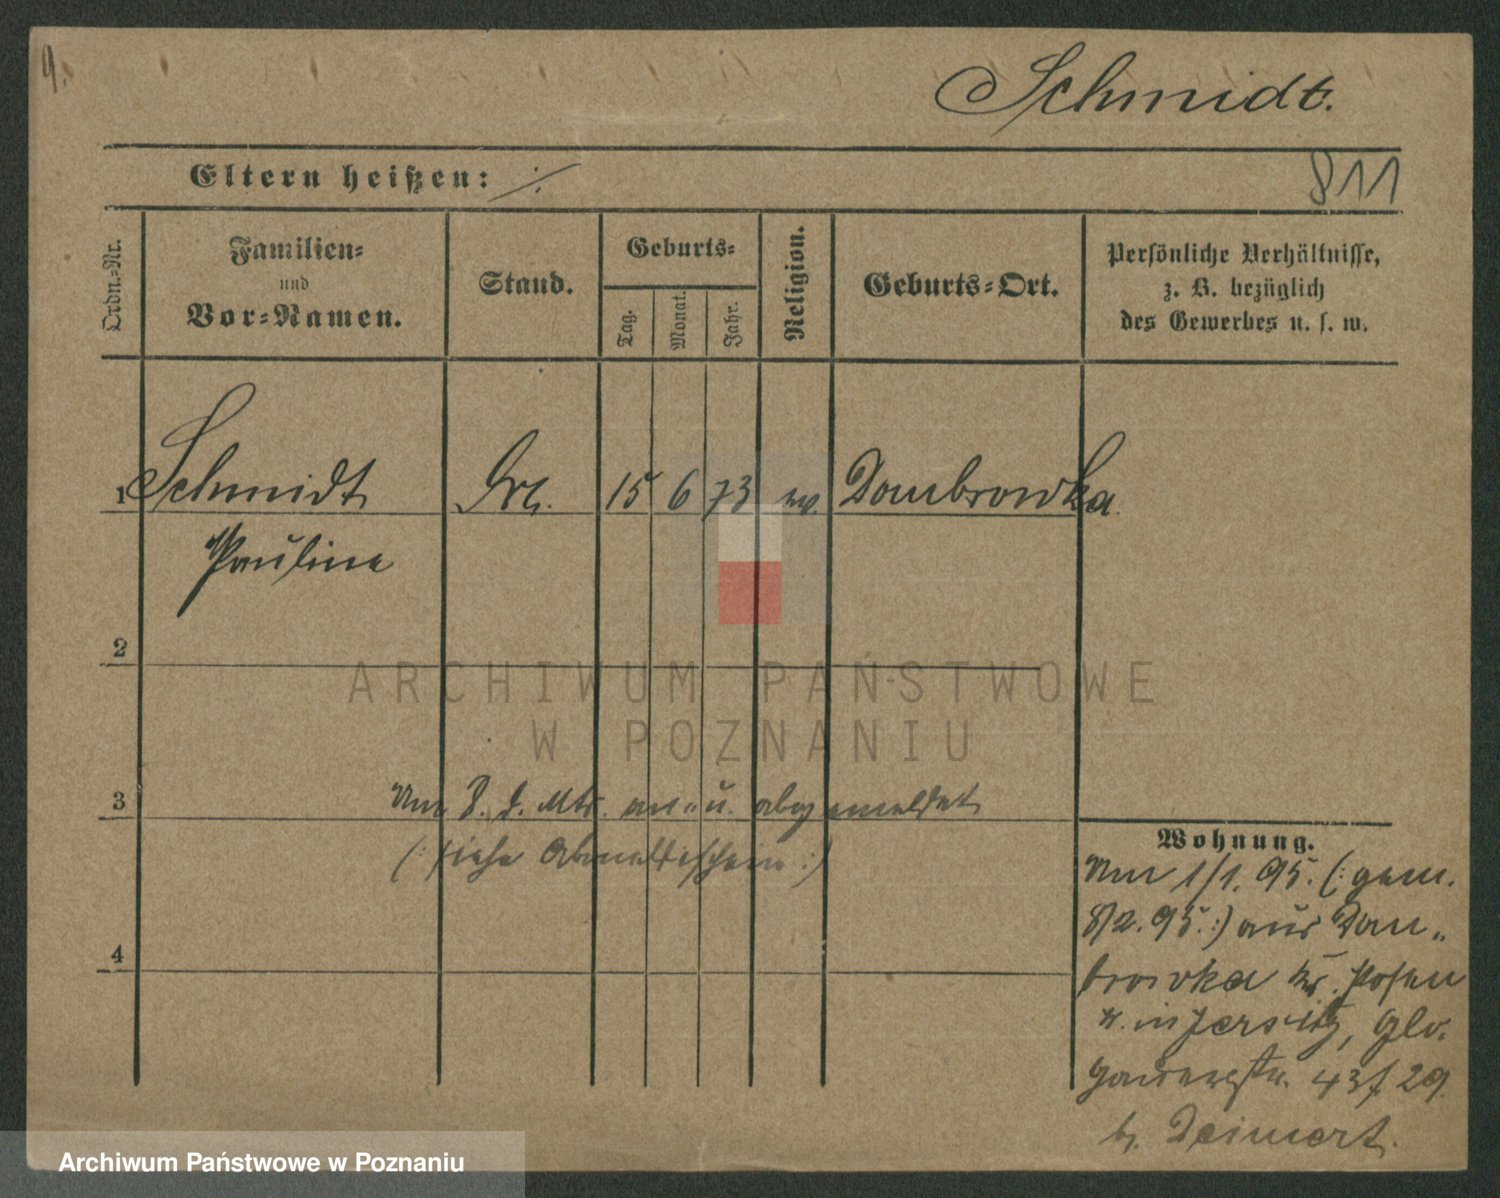 9.
Schmidt.
Eltern heißen: ./.
811
Ordn.-Nr.
Familien-
und
Vor-Namen.
Stand.
Geburts-
Tag.
Monat.
Jahr.
Religion.
Geburts-Ort.
Persönliche Verhältnisse,
z. B. bezüglich
des Gewerbes u. s. w.
1 Schmidt 15 6 73 ev. Dombrowka
Pauline
2
ARCHIWUM PAŃSTWOWE
W POZNANIU
Am 8. d. Mts. an- u. abgemeldet
3
(: siehe Abmeldeschein :)
4
Wohnung.
Am 1/1. 95. (: gem.
8/2. 95. :) aus Dom-
browka Kr. Posen
n. in Jersitz, Glo-
gauerstr. 43 / 29.
b.
Archiwum Państwowe w Poznaniu